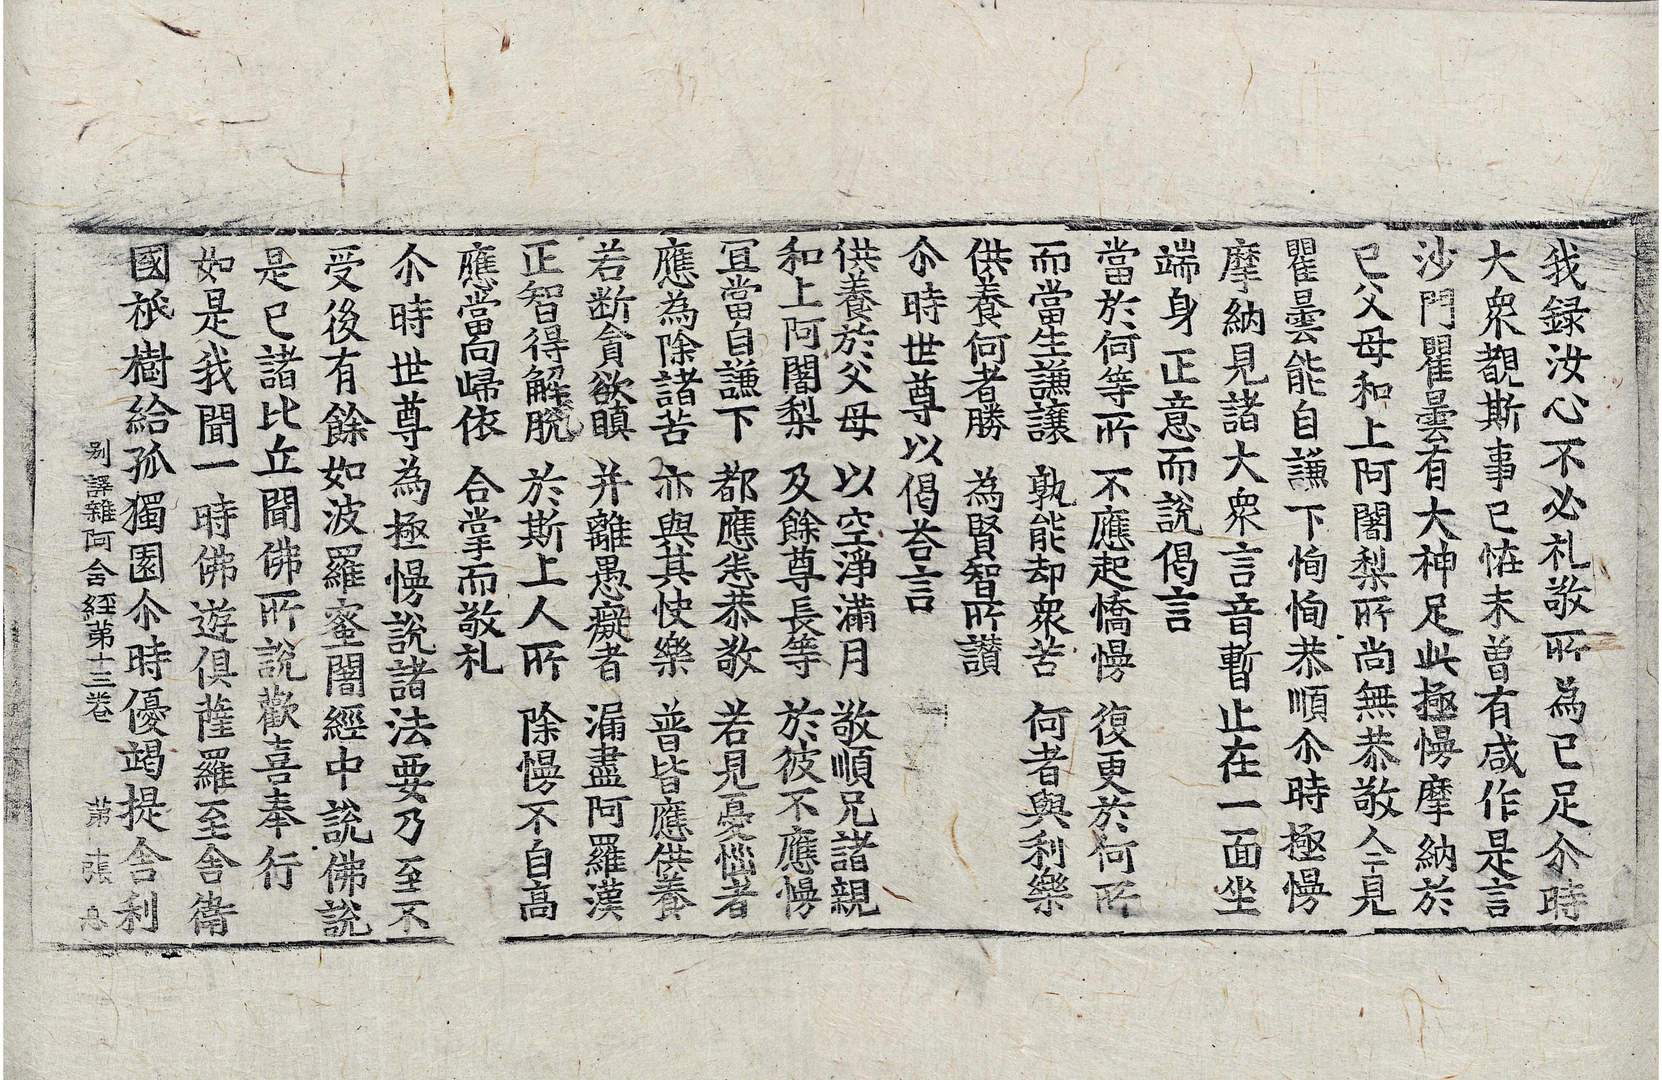 我録汝心不必礼敬所為已足尒時
大衆覩斯事已恠未曽有咸作是言
沙門瞿曇有大神足此極慢摩納於
已父母和上阿闍梨所尚無恭敬今見
瞿曇能自謙下恂恂恭順尒時極慢
摩納見諸大衆言音暫止在一面坐
端身正意而說偈言
當於何等所 不應起憍慢 復更於何所
而當生謙讓 孰能却衆苦 何者與利樂
供養何者勝 為賢智所讃
尒時世尊以偈荅言
供養於父母 以空淨滿月 敬順兄諸親
和上阿闍梨 及餘尊長等 於彼不應慢
冝當自謙下 都應恙恭敬 若見憂惱者
應為除諸苦 亦與其快樂 普皆應供養
若断貪欲瞋 并離愚癡者 漏盡阿羅漢
正智得解脫 於斯上人所 除慢不自高
應當向歸依 合掌而敬礼
尒時世尊為極慢說諸法要乃至不
受後有餘如波羅蜜闍經中說佛說
是已諸比丘聞佛所說歡喜奉行
如是我聞一時佛遊俱薩羅至舎衞
國祇樹給孤獨園尒時優竭提舎利
别譯雜阿含經第十三卷 第 張